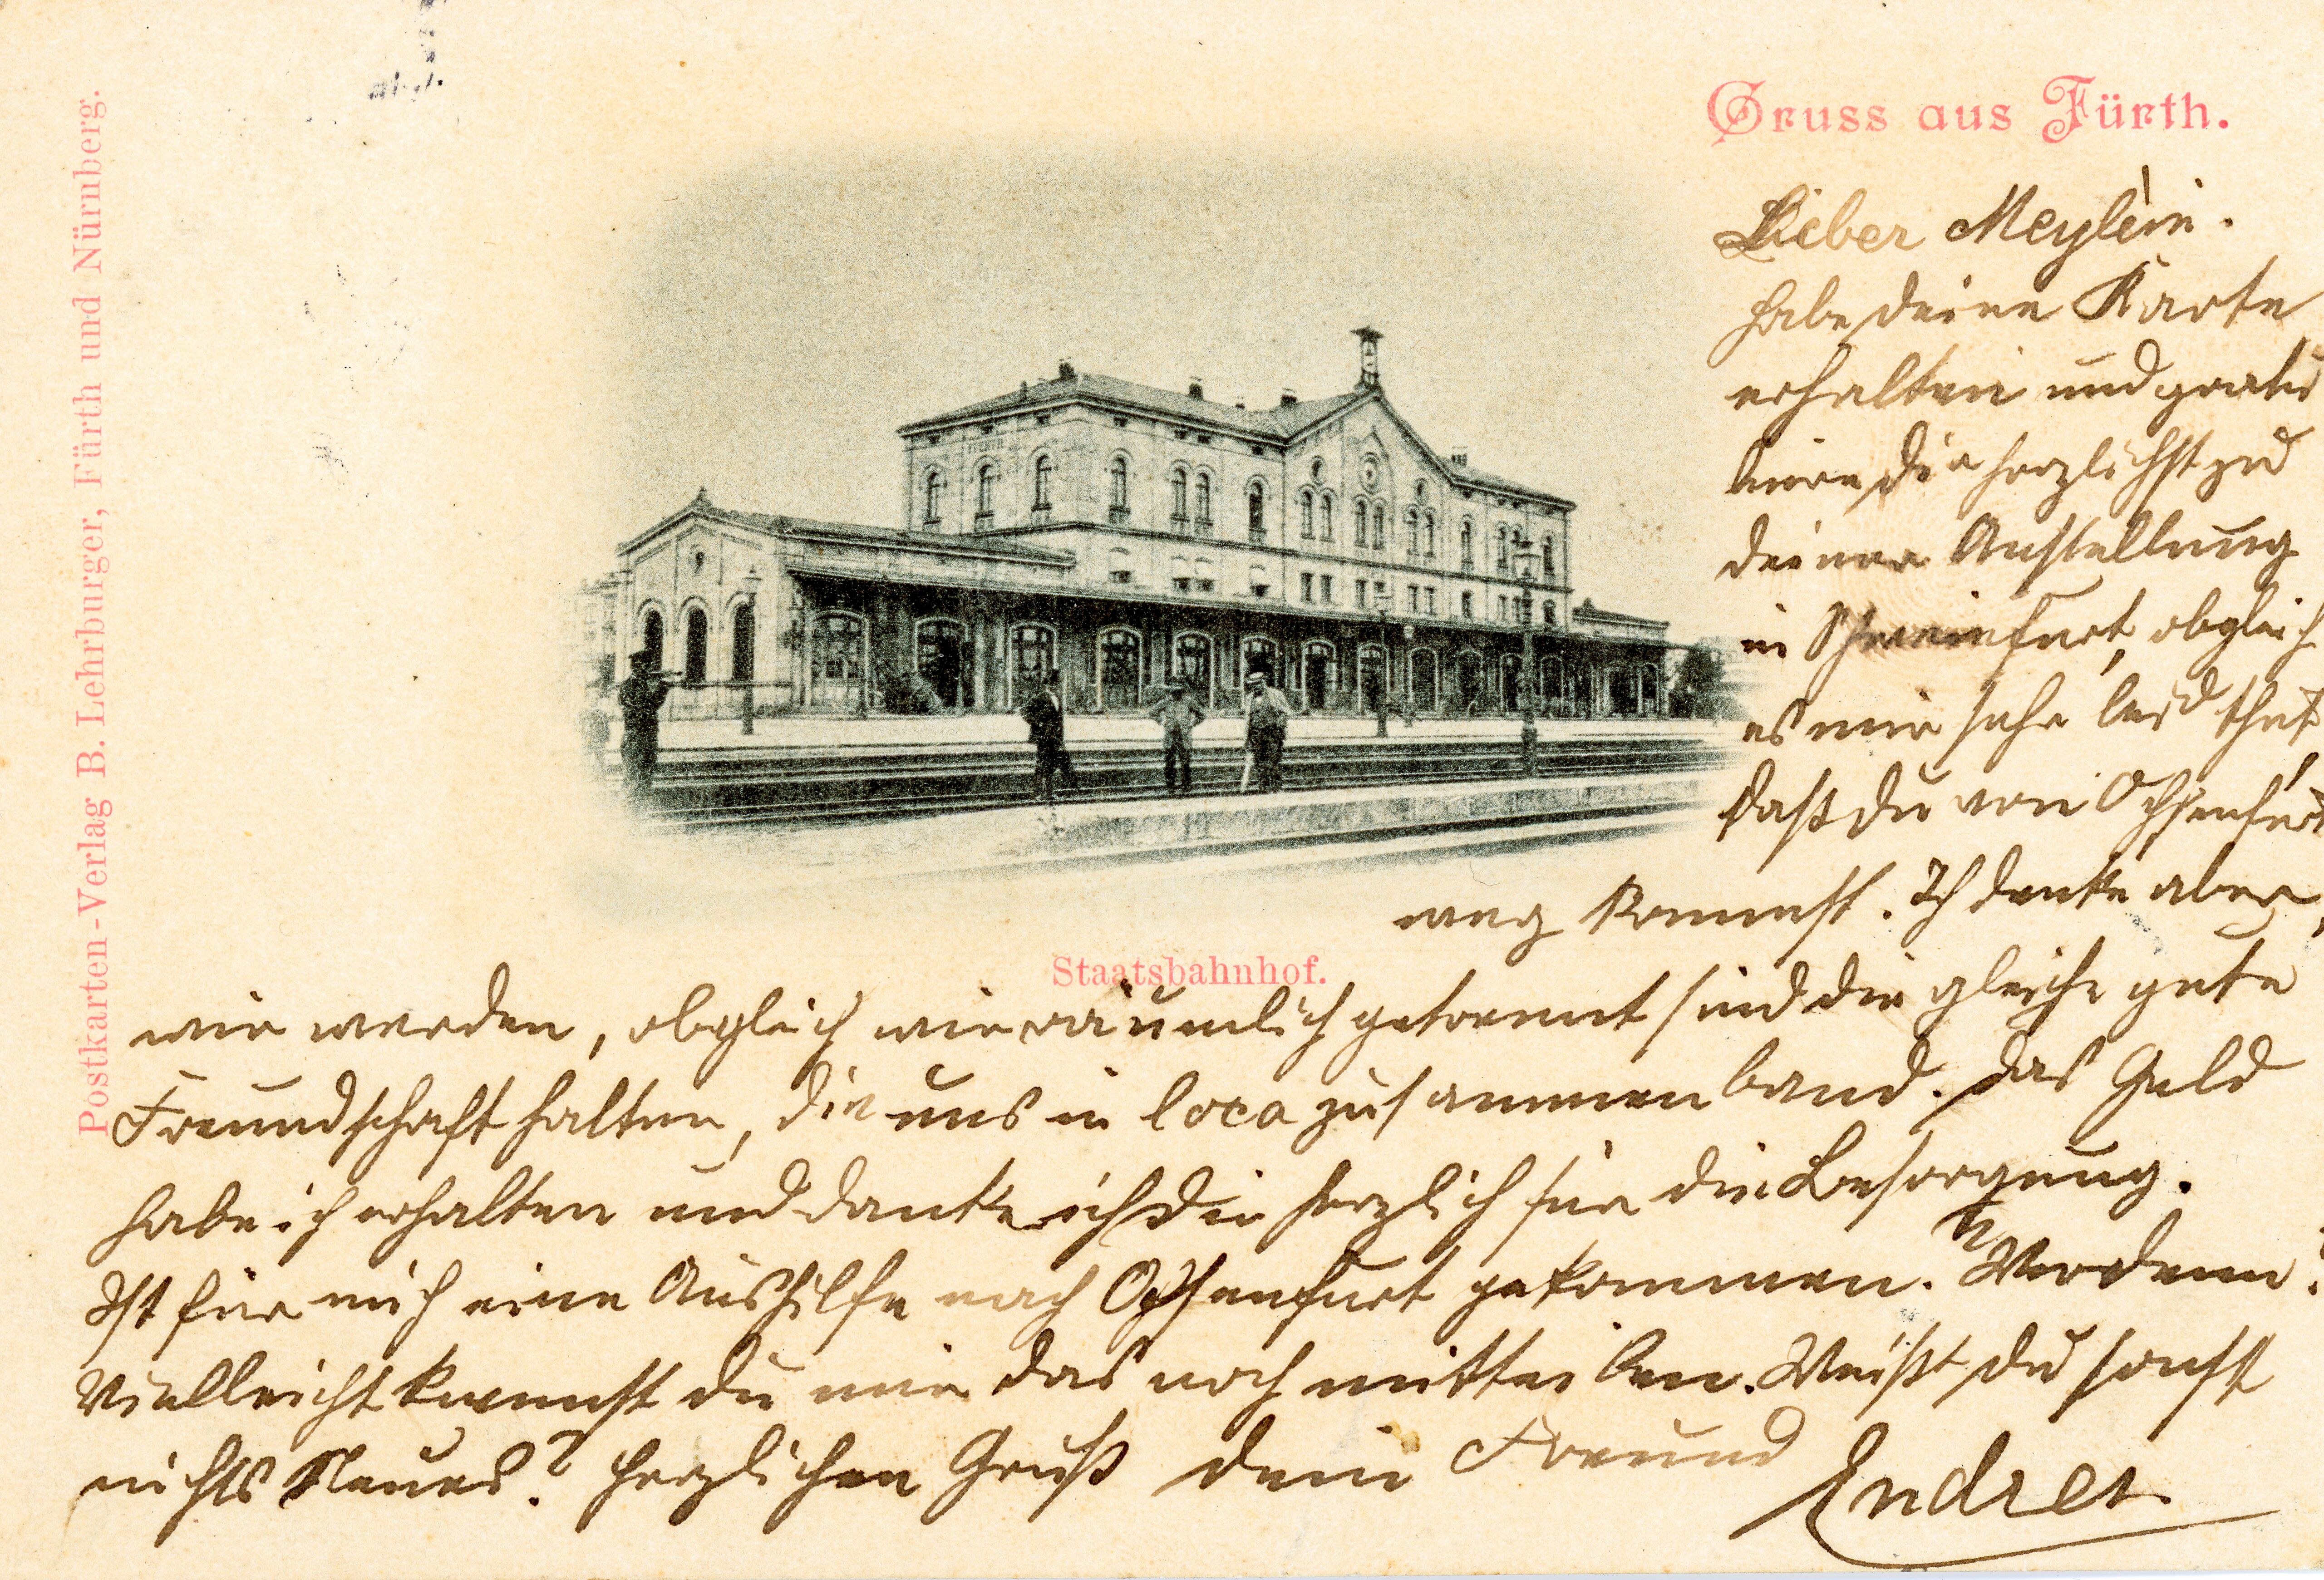 Gruss aus Fürth.
Lieber Meylein.
Habe deine Karte
erhalten und gratu
liere Dir herzlichst zu
deiner Anstellung
in Schweinfurt, obgleich
es mir sehr leid thut
daß du von Ochsenfurt
weg kommst. Ich denke aber,
Staatsbahnhof.
wir werden, obgleich wir räumlich getrennt sind die gleiche gute
Freundschaft halten, die uns in loco zusammen band. Das Geld
habe ich erhalten und danke ich dir herzlich für die Besorgung.
Ist für mich eine Aushilfe nach Ochsenfurt gekommen. Wer denn?
Vielleicht kannst du mir das noch mitteilen. Weißt du sonst
nichts Neues? Herzlichen Gruß dein Freund
Endres
Postkarten-Verlag B. Lehrburger, Fürth und Nürnberg.